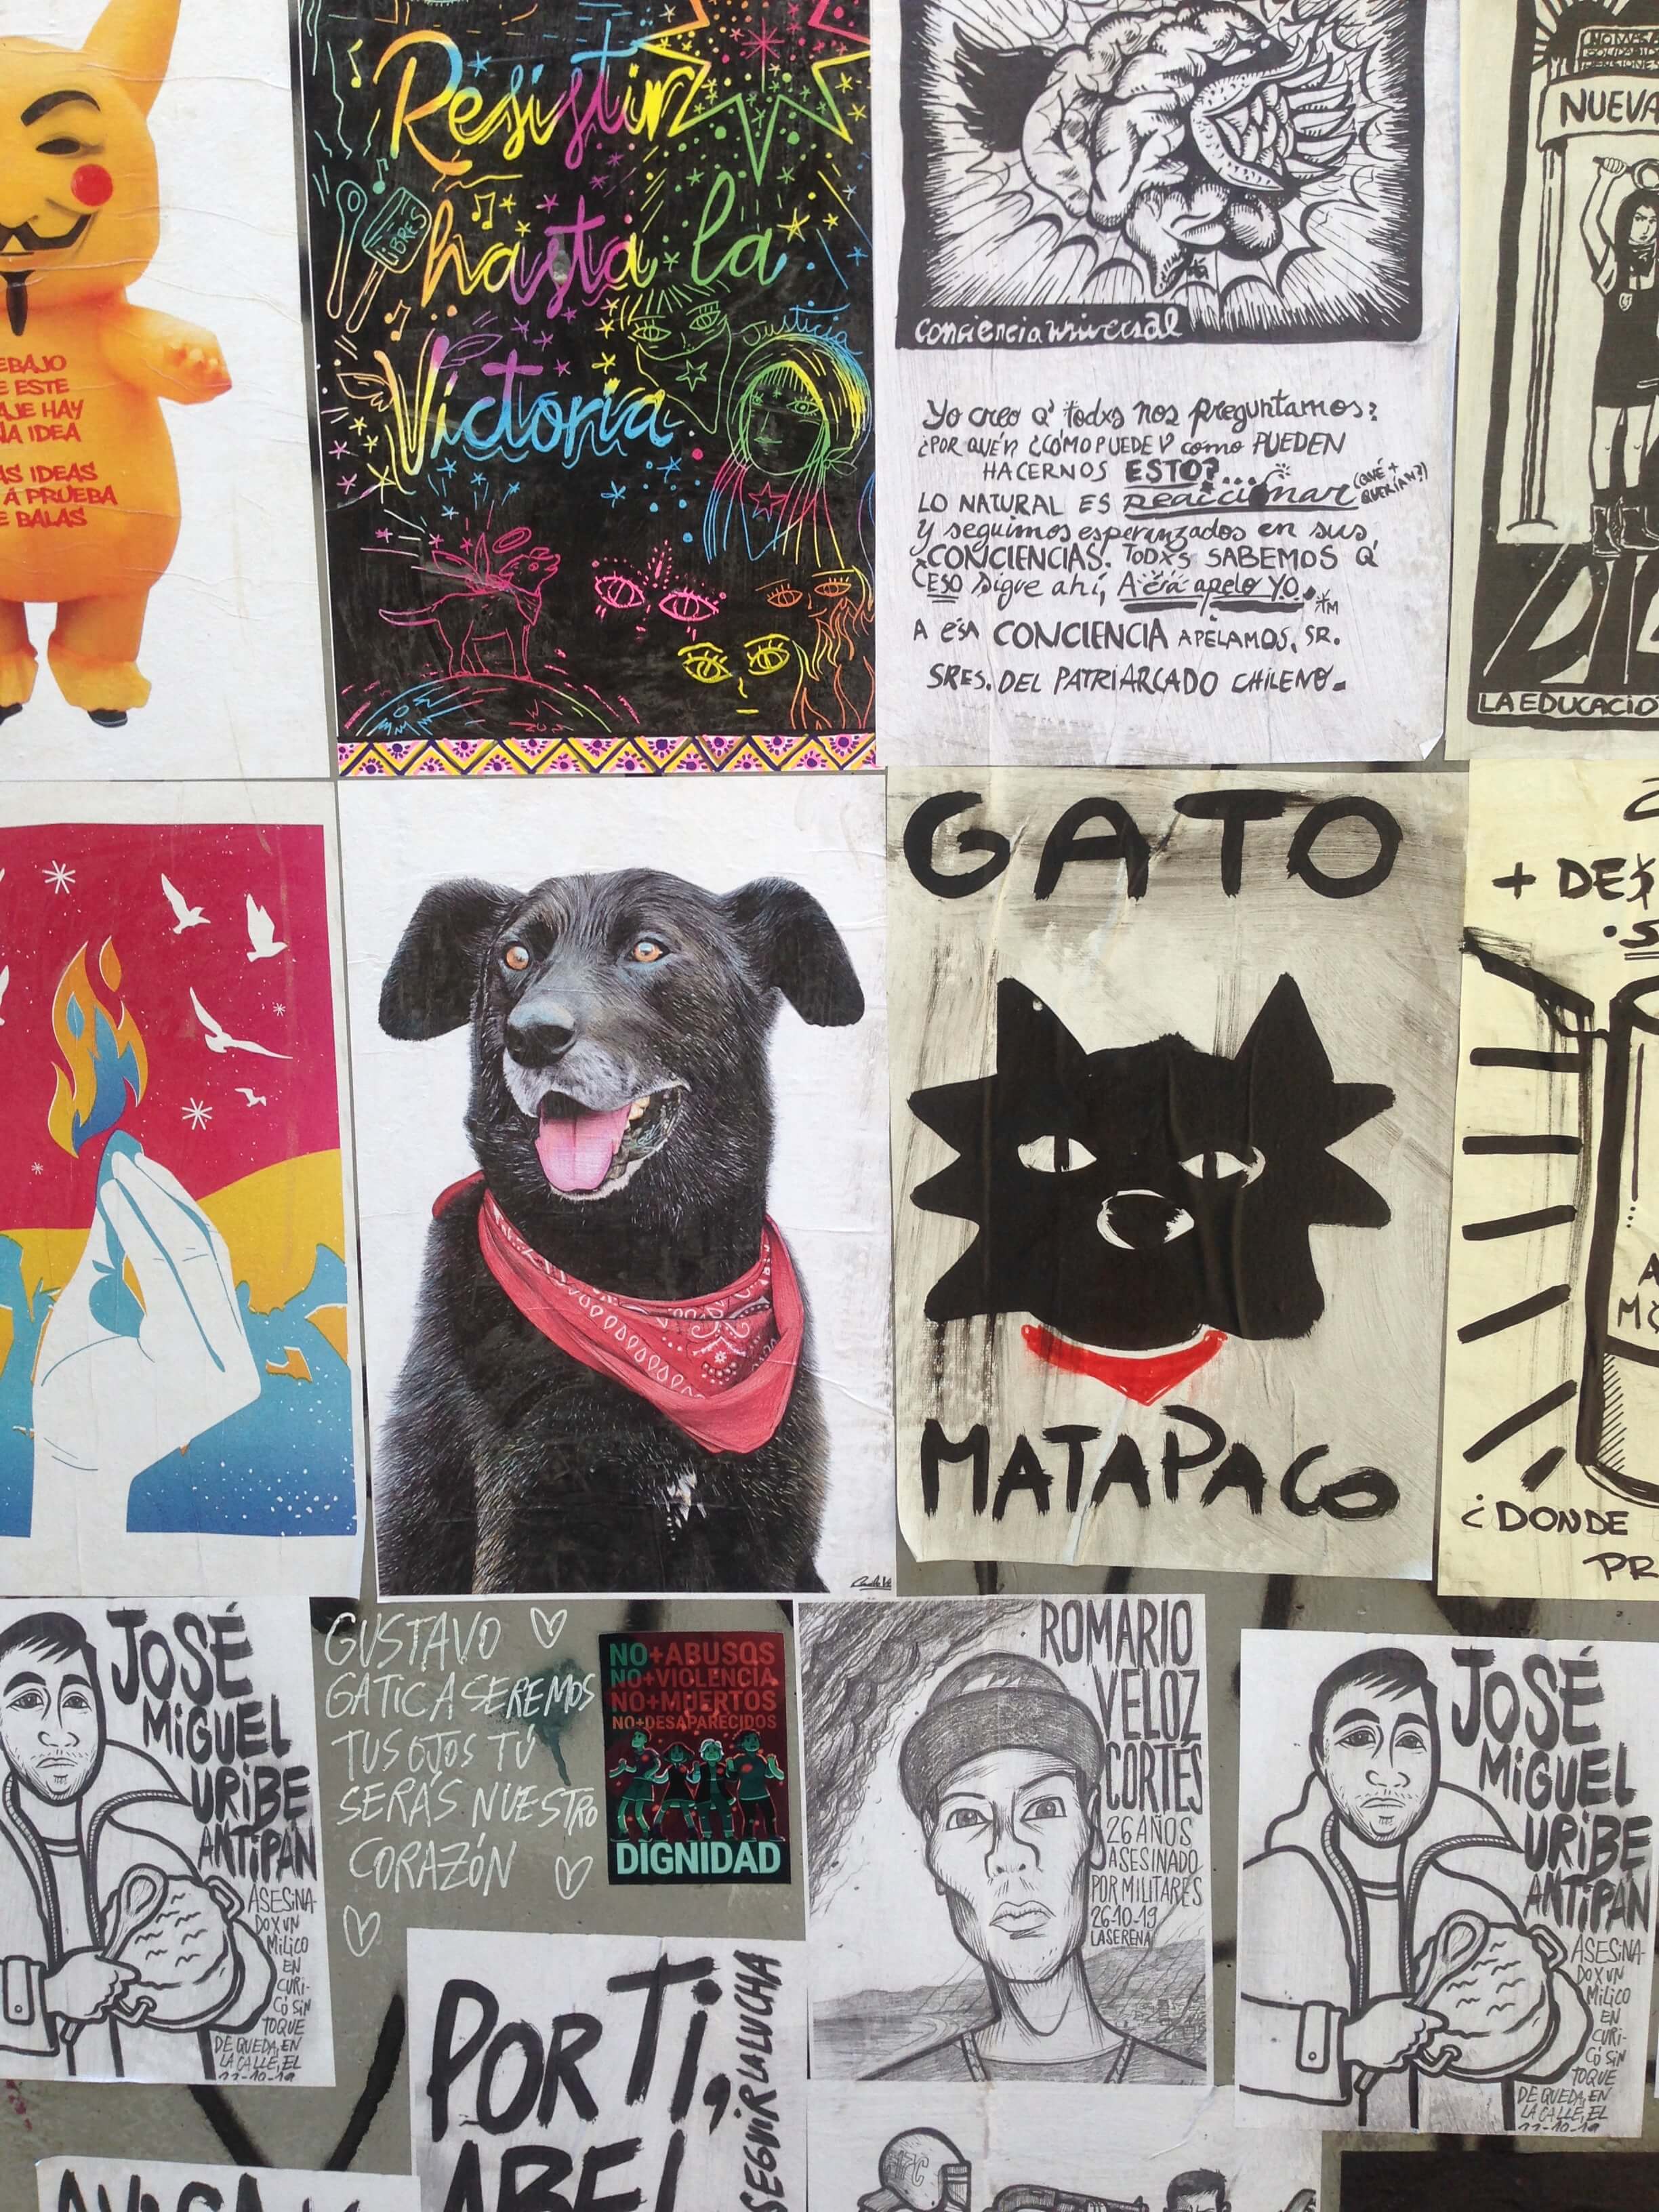 Resistir
hasta la
Victoria
LIBRES
Justicia
ESTE
HAY
IDEA
IDEAS
Á PRUEBA
BALAS
conciencia universal
Yo creo Q' todxs nos preguntamos?
¿POR QUÉ?? ¿CÓMO PUEDE Y como PUEDEN
HACERNOS ESTO?...
LO NATURAL ES REACCIONAR (QUÉ + QUERÍAN?)
Y seguimos esperanzados en sus
CONCIENCIAS. TODXS SABEMOS Q
ESO sigue ahí, A esa apelo YO.
A ESA CONCIENCIA APELAMOS, SR.
SRES. DEL PATRIARCADO CHILENO.
NUEVA
LA EDUCACIO
GATO
MATAPACO
+ DES
¿DONDE
PR
JOSÉ
MIGUEL
URIBE
ANTIPÁN
ASESINA-
DO X UN
MILICO
EN
CURI-
CÓ SIN
TOQUE
DE QUEDA, EN
LA CALLE, EL
GUSTAVO
GATICA SEREMOS
TUS OJOS TÚ
SERÁS NUESTRO
CORAZÓN
NO+ABUSOS
NO+VIOLENCIA
NO+MUERTOS
NO+DESAPARECIDOS
DIGNIDAD
ROMARIO
VELOZ
CORTÉS
26 AÑOS
ASESINADO
POR MILITARES
26-10-19
LA SERENA
JOSÉ
MIGUEL
URIBE
ANTIPÁN
ASESINA-
DO X UN
MILICO
EN
CURI-
CÓ SIN
TOQUE
DE QUEDA, EN
LA CALLE, EL
POR TI,
ABEL
SEGUIR LA LUCHA